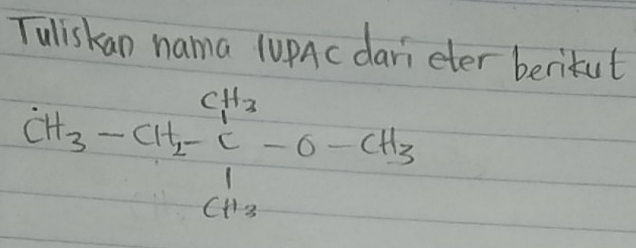 Tuliskan nama IUPAC dari eter berikut
CH3
CH3 - CH2 - C - O - CH3
CH3